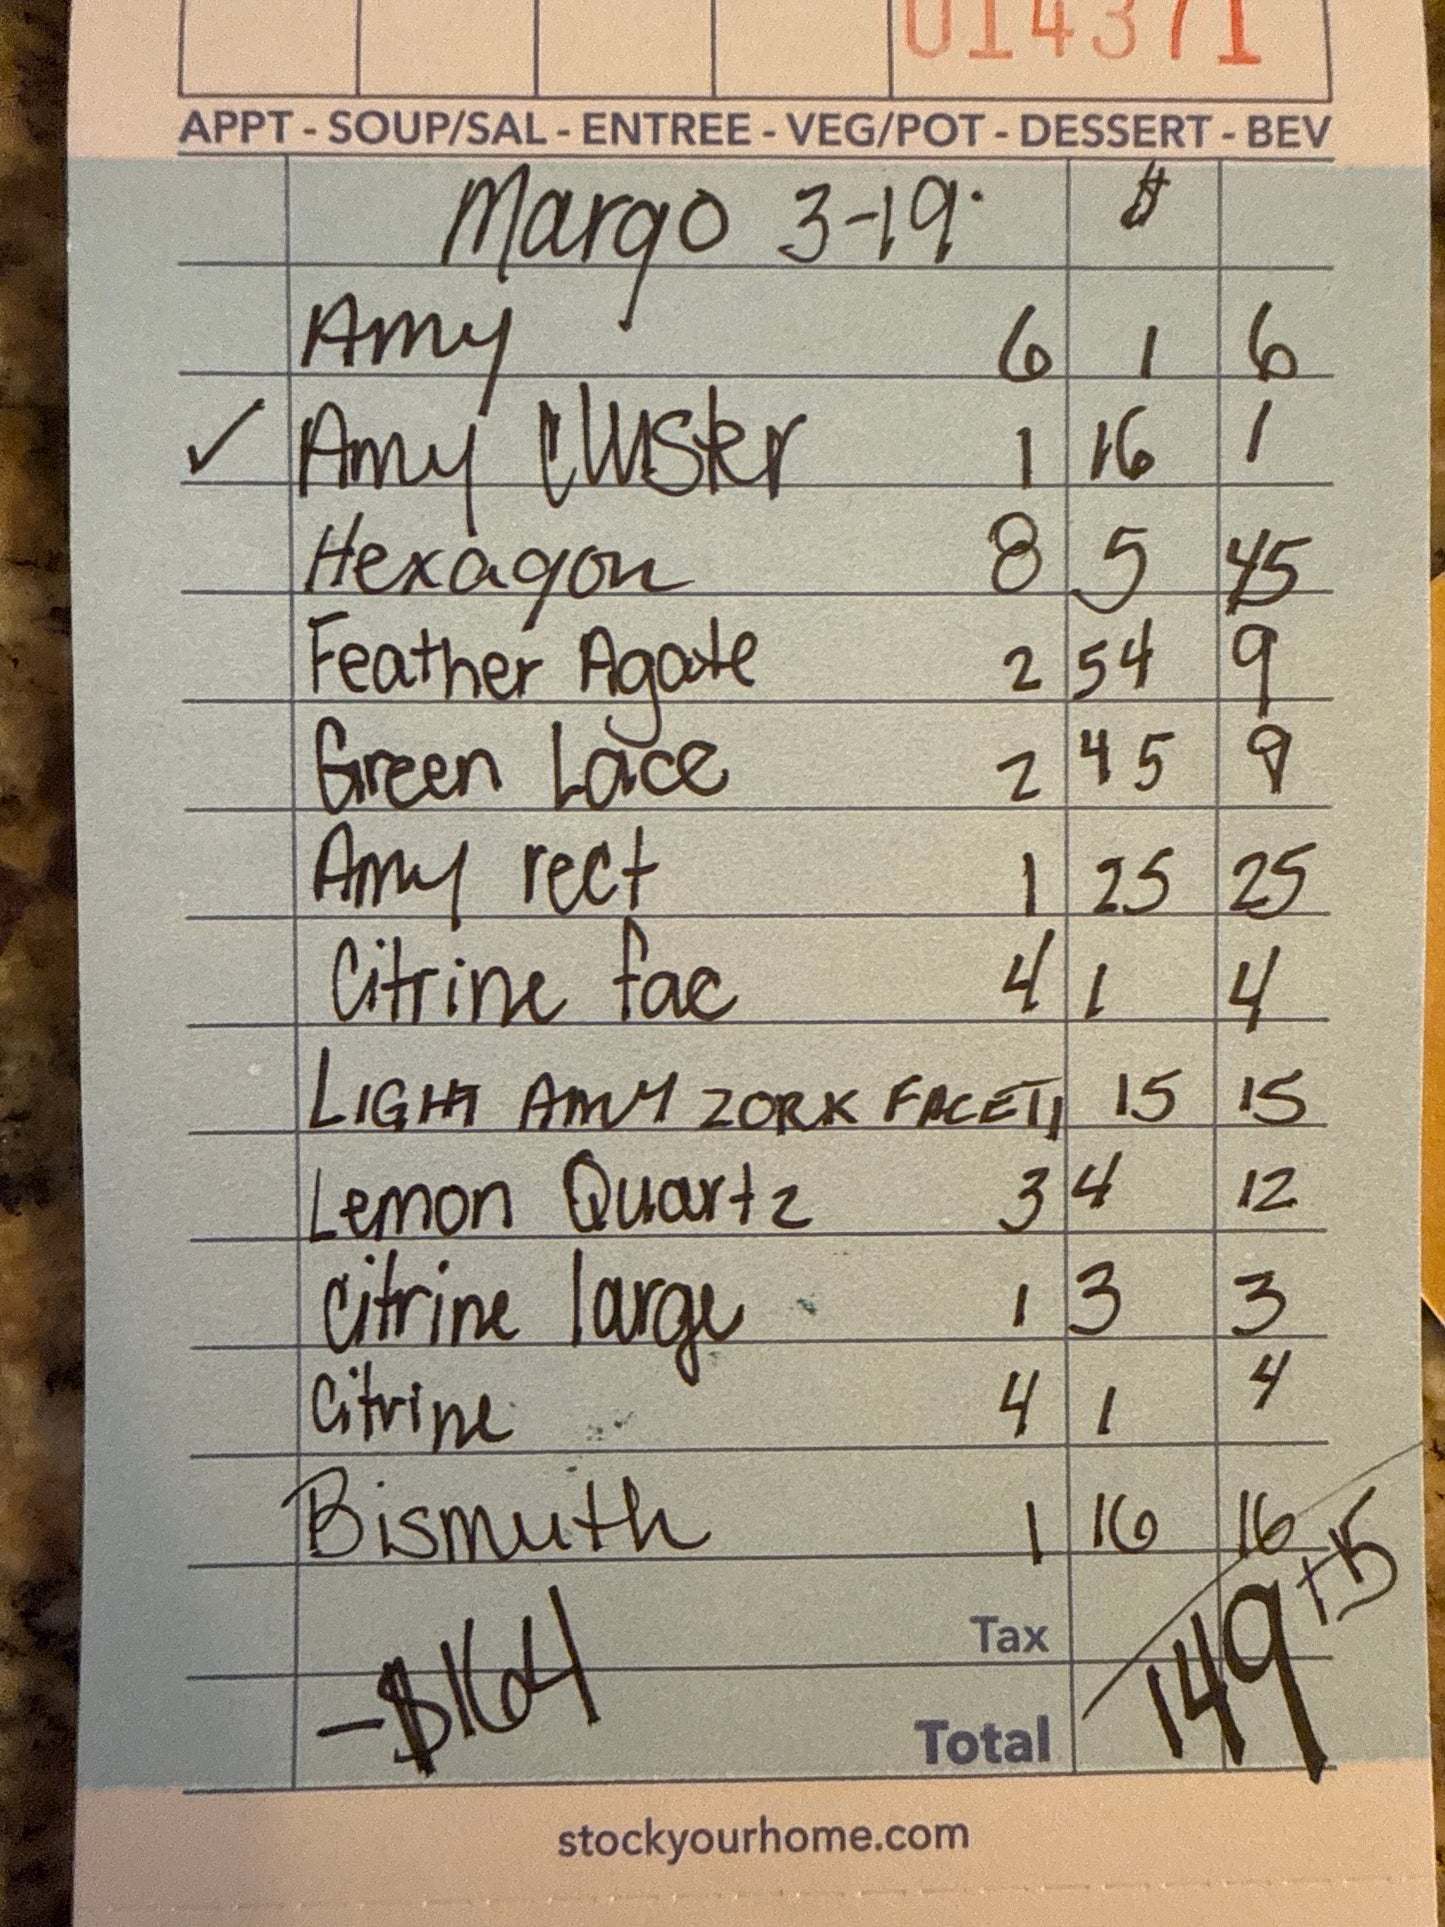 014371
APPT - SOUP/SAL - ENTREE - VEG/POT - DESSERT - BEV
Margo 3-19. $
Amy 6 1 6
✓ Amy Cluster 1 16 1
Hexagon 8 5 45
Feather Agate 2 54 9
Green Lace 2 45 9
Amy rect 1 25 25
Citrine fac 4 1 4
LIGHT AMY ZORK FACET 1 15 15
Lemon Quartz 3 4 12
Citrine large 1 3 3
Citrine 4 1 4
Bismuth 1 16 16
Tax
-$164 Total 149 +15
stockyourhome.com